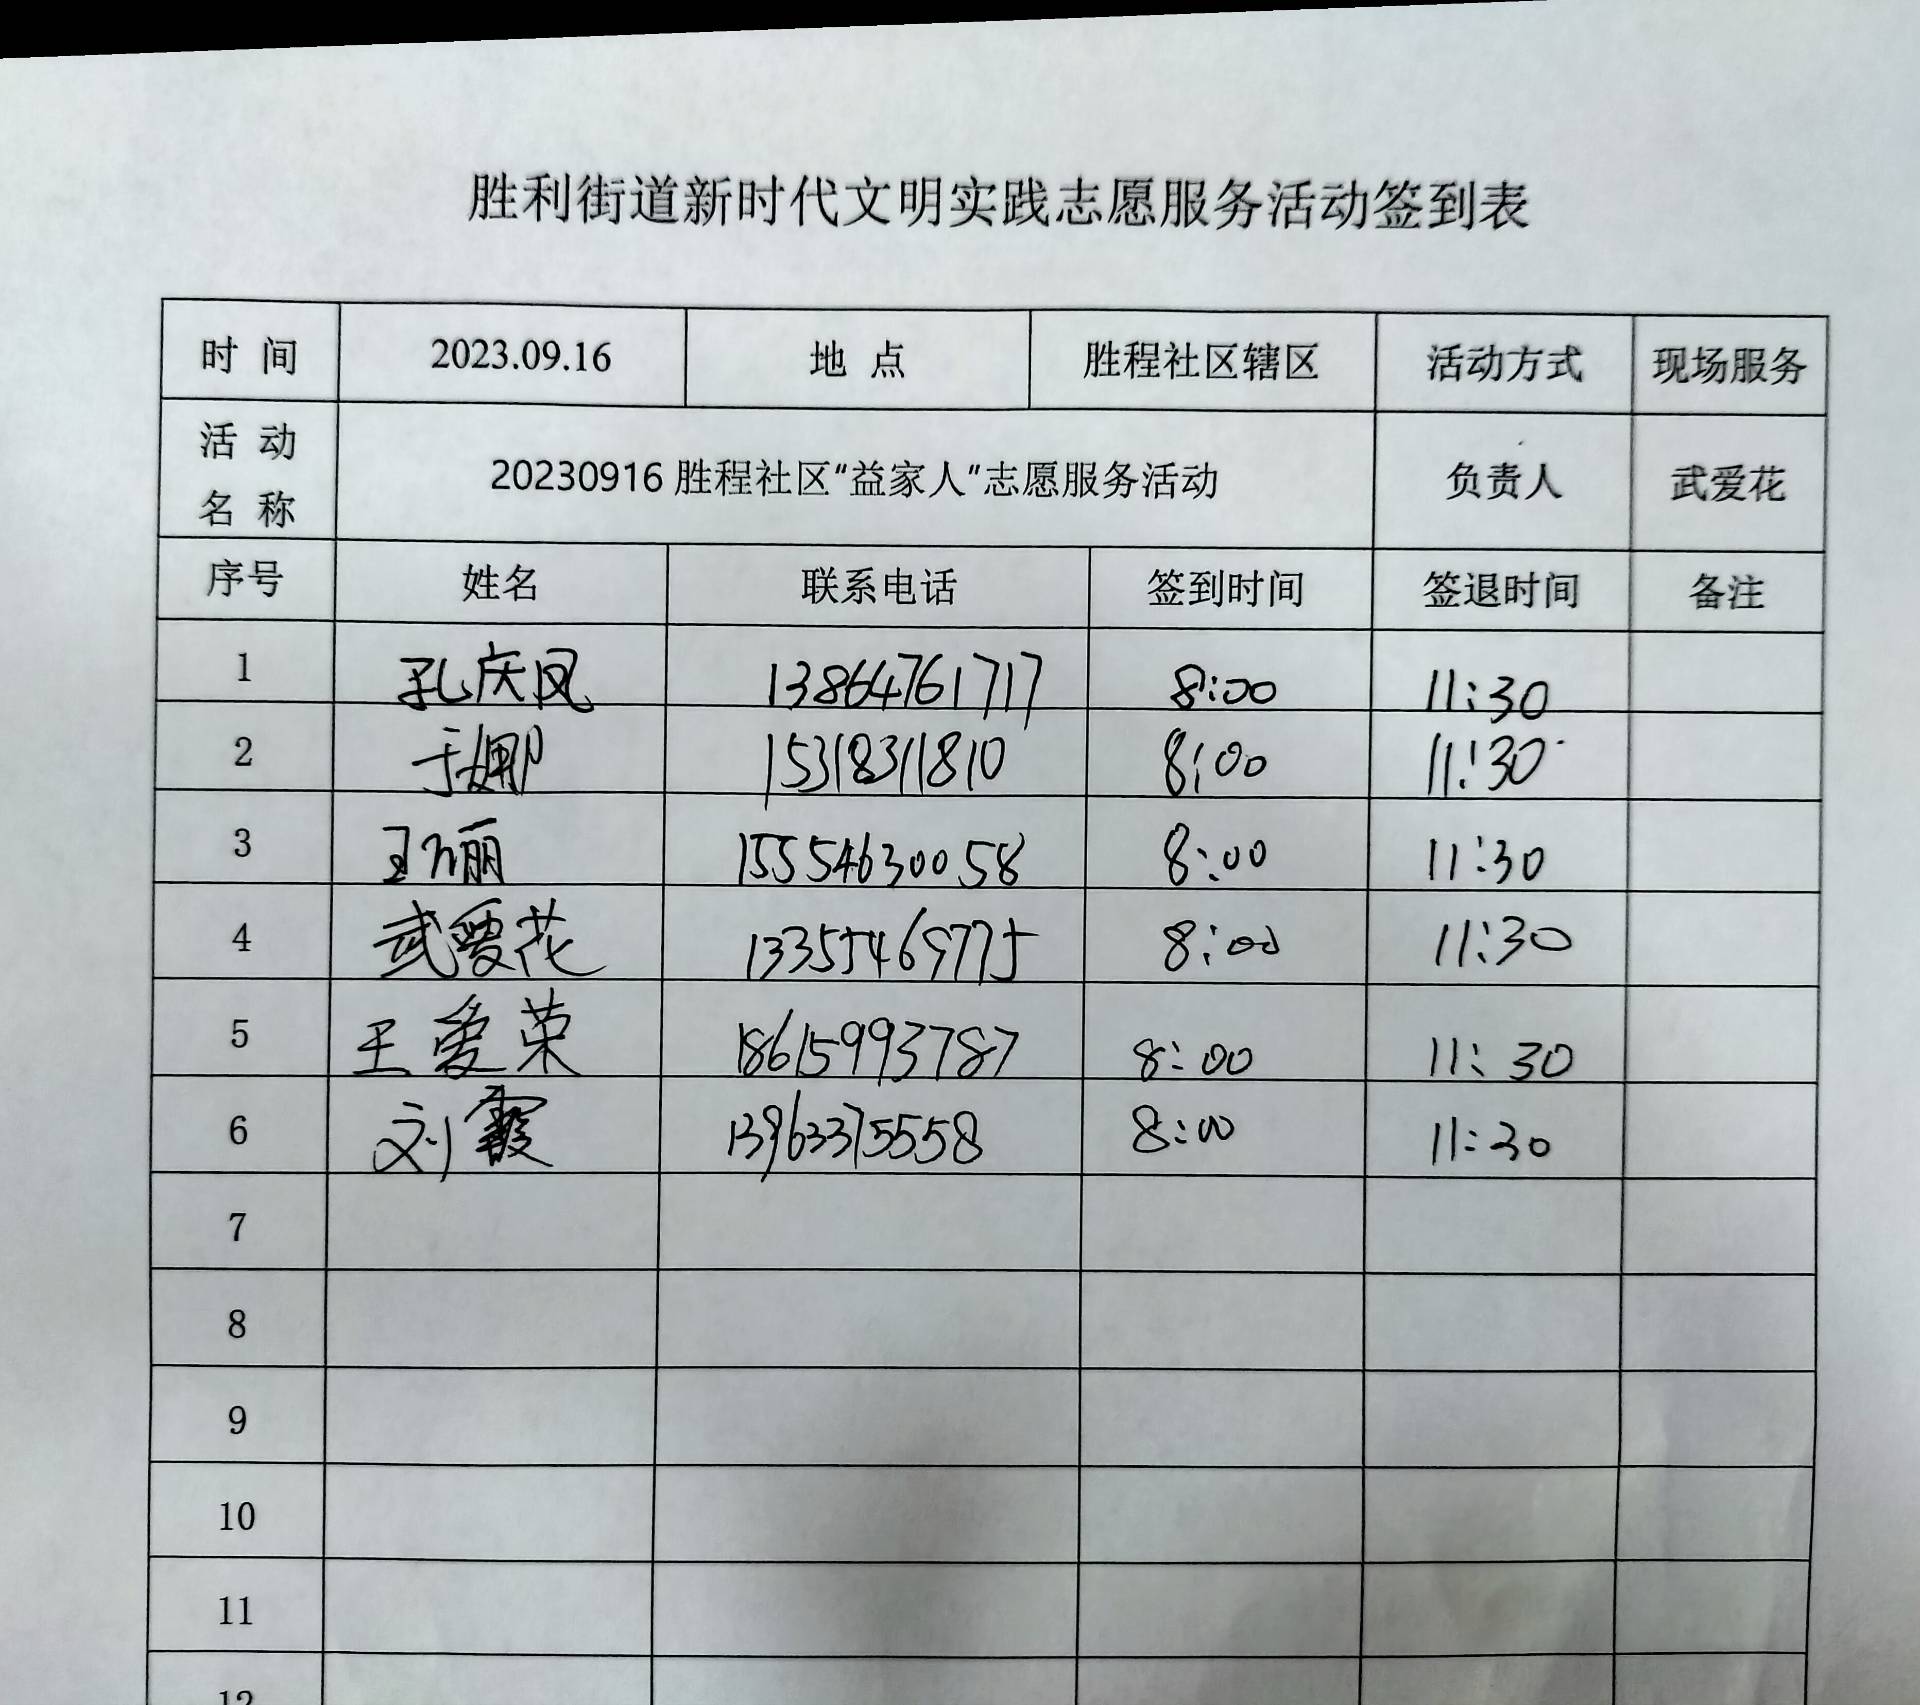 胜利街道新时代文明实践志愿服务活动签到表
时 间 2023.09.16 地 点 胜程社区辖区 活动方式 现场服务
活 动
名 称 20230916 胜程社区“益家人”志愿服务活动 负责人 武爱花
序号 姓名 联系电话 签到时间 签退时间 备注
1 孔庆凤 13864761717 8:00 11:30
2 于娜 15318311810 8:00 11:30
3 王丽 15554630058 8:00 11:30
4 武爱花 13355469775 8:00 11:30
5 王爱荣 18615993787 8:00 11:30
6 刘霞 13963375558 8:00 11:30
7
8
9
10
11
12